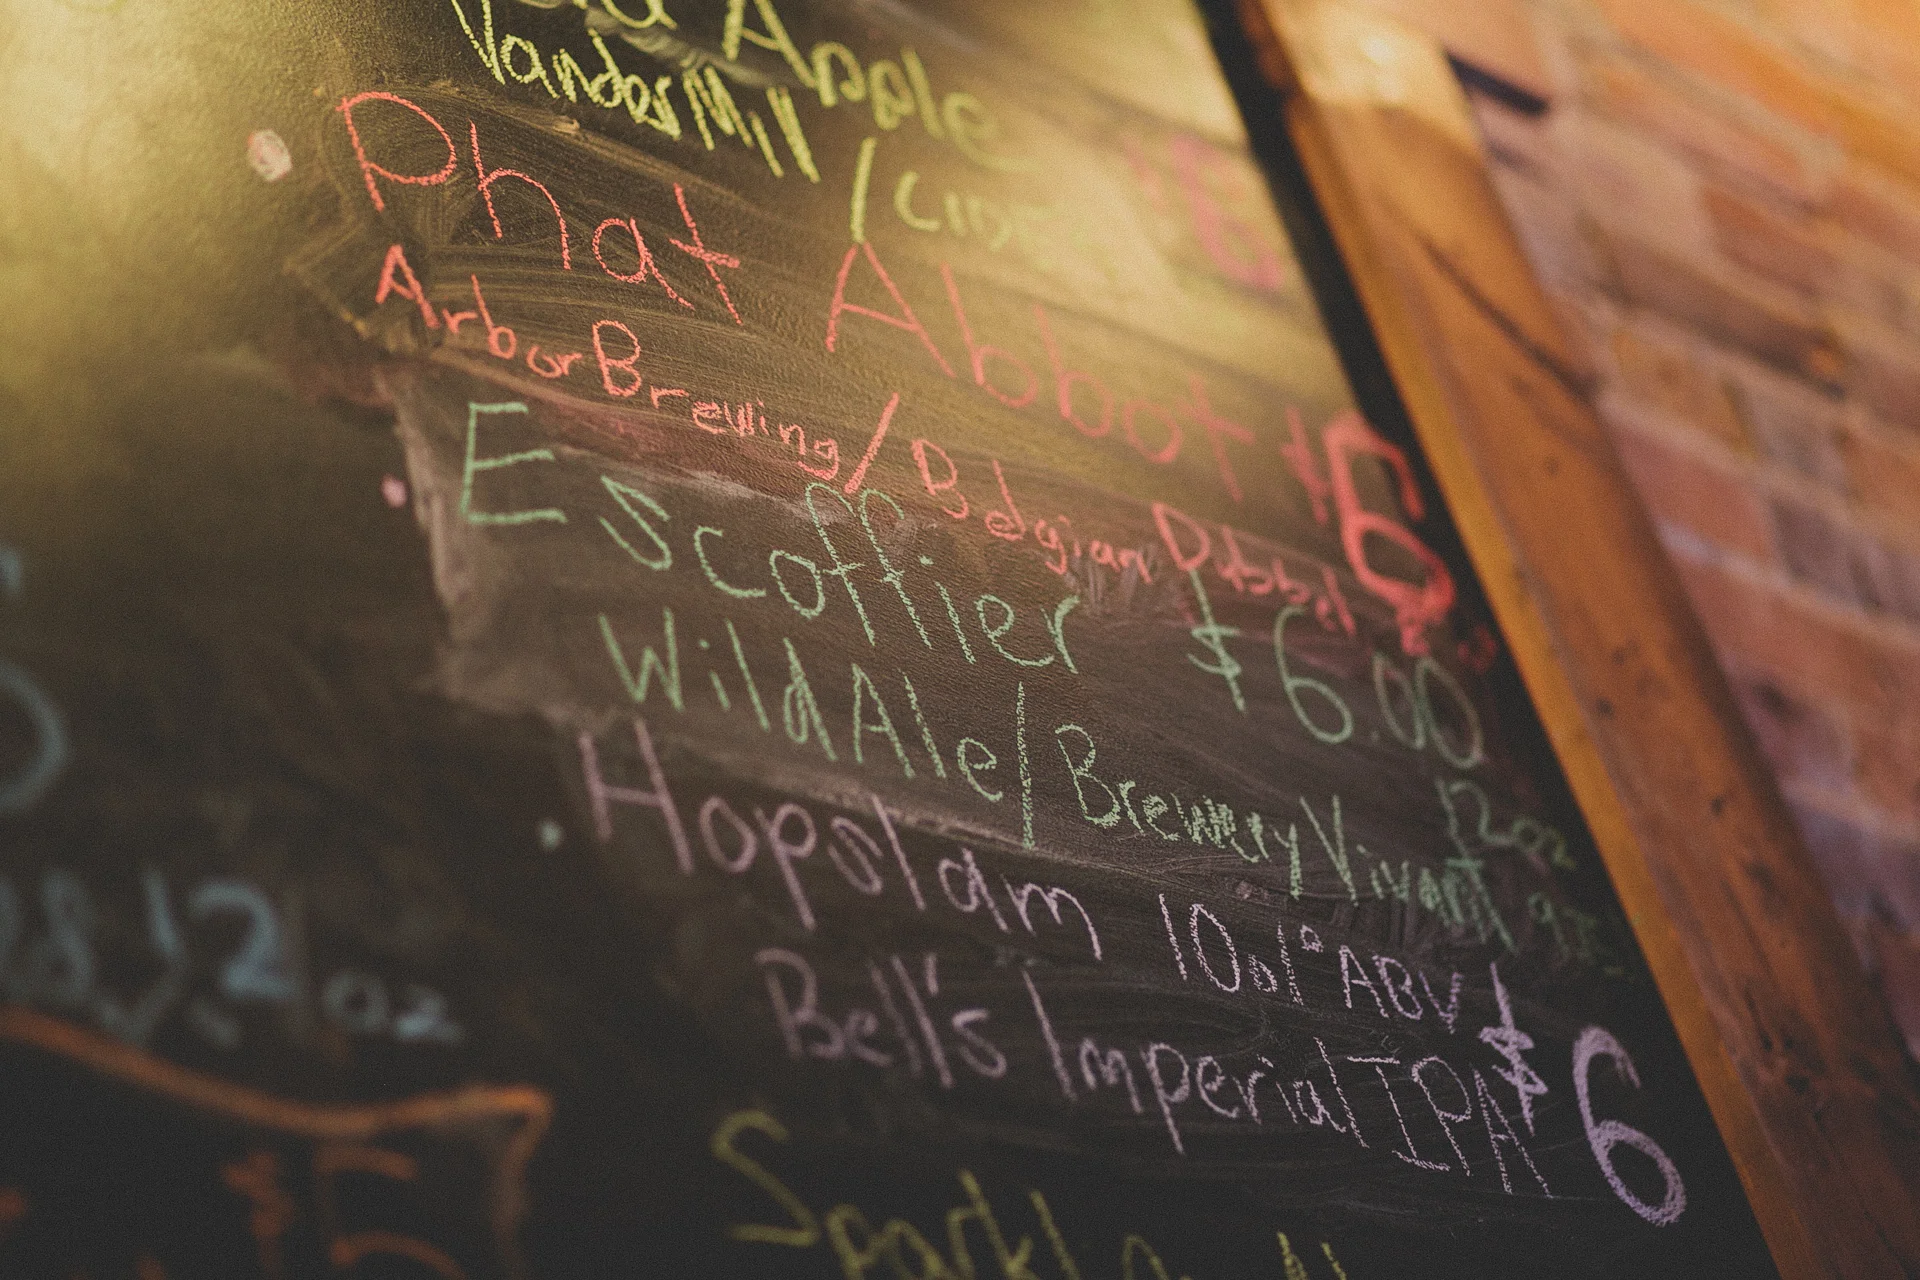 Apple
Vander Mill / CID
Phat Abbot $6
Arbor Brewing / Belgian Dubbel
Escoffier $6.00
Wild Ale / Brewery Vivant
12oz
Hopslam 10% ABV $6
Bell's Imperial IPA
12oz